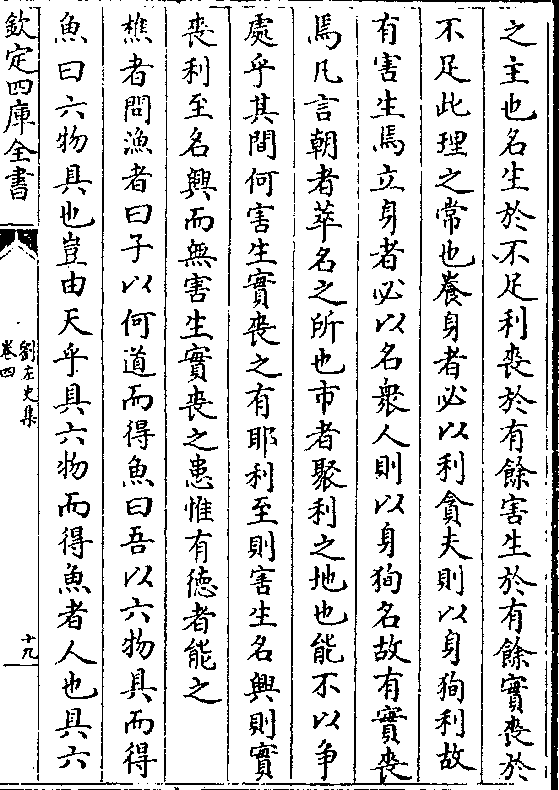 之主也名生於不足利喪於有餘害生於有餘實喪於
不足此理之常也養身者必以利貪夫則以身狥利故
有害生焉立身者必以名衆人則以身狥名故有實喪
焉凡言朝者萃名之所也市者聚利之地也能不以争
處乎其間何害生實喪之有耶利至則害生名興則實
喪利至名興而無害生實喪之患惟有徳者能之
樵者問漁者曰子以何道而得魚曰吾以六物具而得
魚曰六物具也豈由天乎具六物而得魚者人也具六
欽定四庫全書
劉左史集
卷四
十九